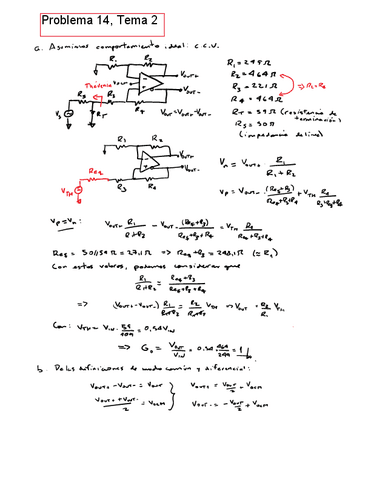 Problema 14, Tema 2
a. Asumimos comportamiento ideal: C.C.V.
R1 = 249 Ω
R2 = 464 Ω
R3 = 221 Ω
R4 = 464 Ω
RT = 59 Ω (resistencia de terminación)
RS = 50 Ω (impedancia de línea)
Thévenin
R1
R2
VOUT+
VOUT-
RS
R3
RT
R4
VS
VOUT = VOUT+ - VOUT-
R1
R2
VOUT+
VOUT-
Req
VTH
R3
R4
Vn = VOUT+ R1 / R1 + R2
Vp = VOUT- (Req+R3) / Req+R3+R4 + VTH R4 / Req+R3+R4
Vp = Vn:
VOUT+ R1 / R1+R2 - VOUT- (Req+R3) / Req+R3+R4 = VTH R4 / Req+R3+R4
Req = 50//59 Ω = 27,1 Ω => Req + R3 = 248,1 Ω (≃ R1)
Con estos valores, podemos considerar que
R1 / R1+R2 = Req+R3 / Req+R3+R4
=> (VOUT+ - VOUT-) R1 / R1+R2 = R2 / R1+R2 VTH => VOUT = R2 / R1 VTH
Con: VTH = VIN · 59 / 109 = 0,54 VIN
=> G0 = VOUT / VIN = 0,54 464 / 249 = 1
b. De las definiciones de modo común y diferencial:
VOUT+ - VOUT- = VOUT
VOUT+ = VOUT / 2 + VOCM
VOUT+ + VOUT- / 2 = VOCM
VOUT- = - VOUT / 2 + VOCM